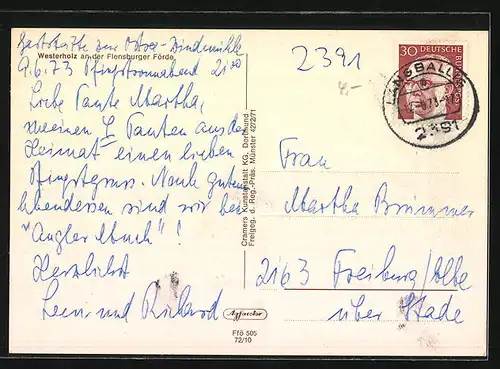 Gaststätte zur Ostsee-Windmühle
Westerholz an der Flensburger Förde
9.6.73 Pfingstsonnabend 21⁰⁰
Liebe Tante Martha,
meinen Tanten aus der
Heimat einen lieben
Pfingstgruss. Nach gutem
Abendessen sind wir bei
"Angler Muck"!
Herzlichst
und Richard
2391
4,-
Cramers Kunstanstalt KG, Dortmund
Freigeg. d. Reg.-Präs. Münster 42/2/71
30 DEUTSCHE BUNDESPOST
LANGBALLIG
2391
Frau
Martha Brümmer
2163 Freiburg/Elbe
über Stade
Agfacolor
Ffö 505
72/10